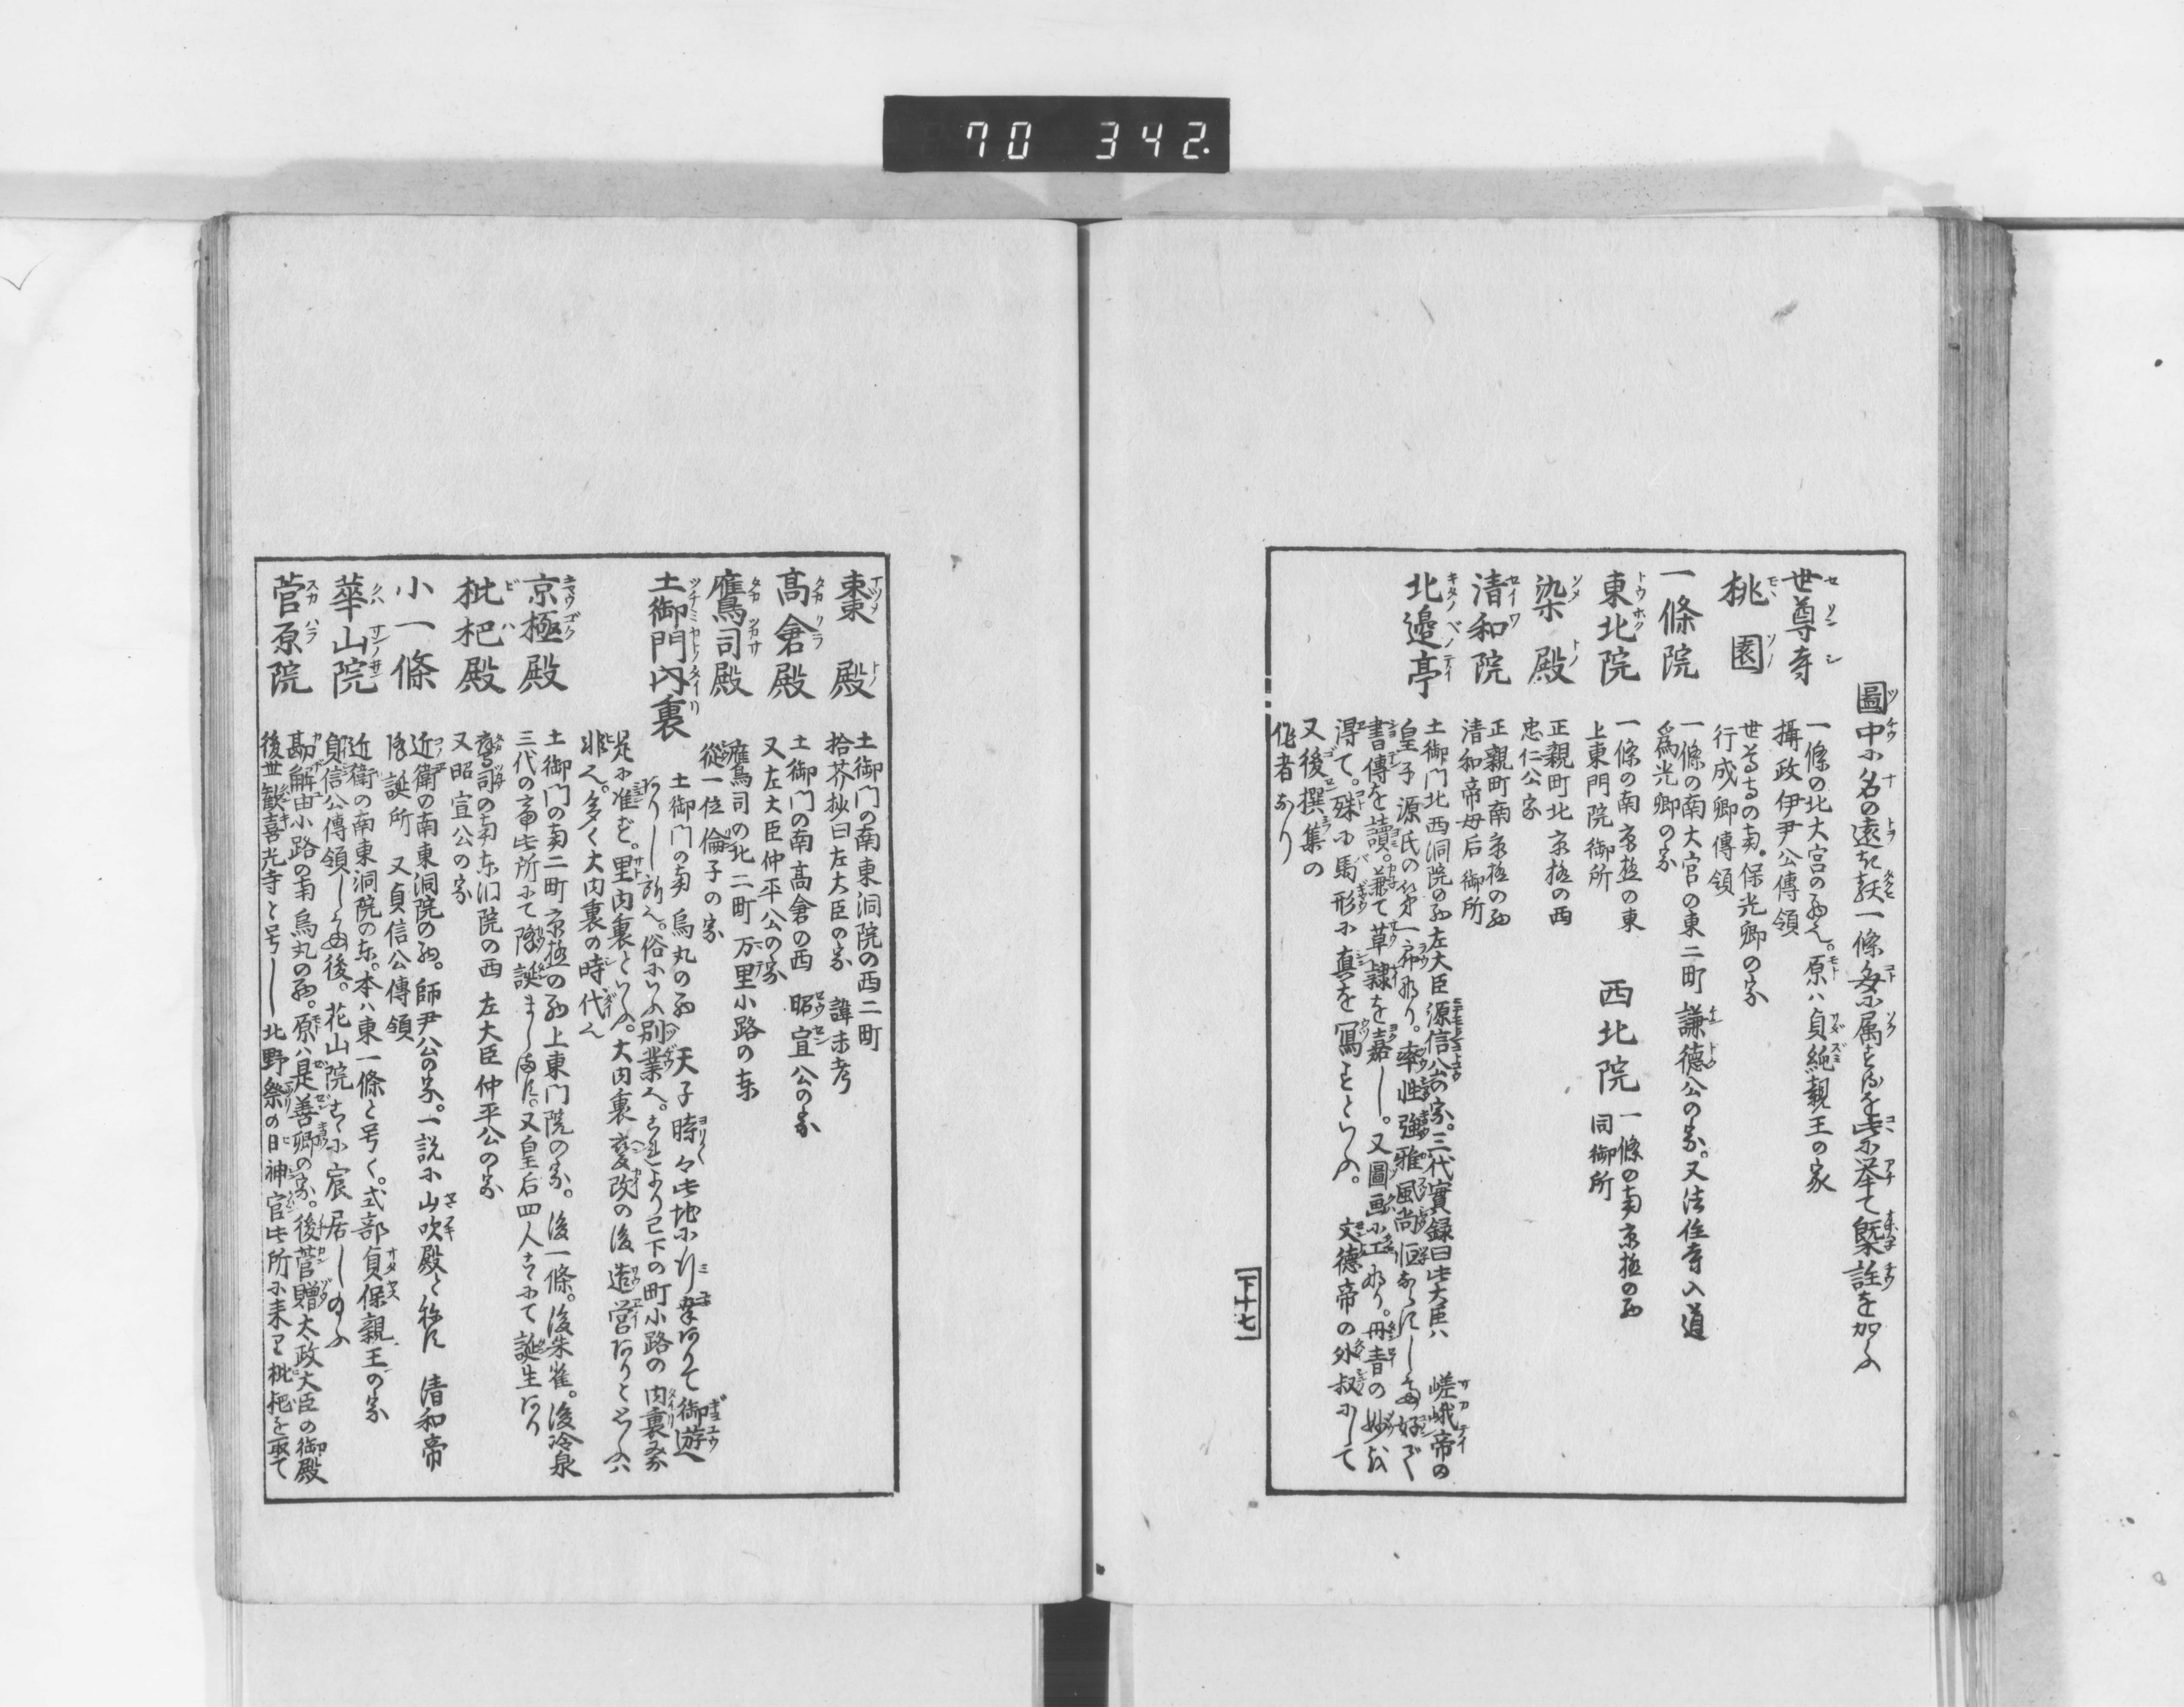 70 342.
圖中に名の遠き類一條多に属する
世尊寺
一條の北大宮の西也。原ハ貞純親王の家
攝政伊尹公傳領
桃園
世尊寺の南。保光卿の家
行成卿傳領
一條院
一條の南大宮の東二町 謙德公の家。又法住寺入道
爲光卿の家
東北院
一條の南京極の東
上東門院御所
西北院
一條の南京極の西
同御所
染殿
正親町北京極の西
忠仁公家
清和院
正親町南京極の西
清和帝母后御所
北邉亭
土御門北西洞院の西左大臣源信公の家。三代實録曰此大臣ハ 嵯峨帝の
皇子源氏の第一郎なり。率性強雅風尚恒
書傳を讀。兼て草隷を嘉し。又圖画に工なり。丹青の妙
得て。殊に馬形に真を寫すといふ。 文德帝の外叔にして
又後撰集の
作者なり
下十七
東殿
土御門の南東洞院の西二町
拾芥抄曰左大臣の家 諱未考
髙倉殿
土御門の南髙倉の西 昭宣公の家
又左大臣仲平公の家
鷹司殿
鷹司の北二町万里小路の東
從一位倫子の家
土御門内裏
土御門の南烏丸の西 天子時々此地に行幸ありて御遊
ありし所也。俗にいふ別業也。これより已下の町小路の内裏
是に准ず。里内裏といふ。大内裏変改の後造営ありといふハ
非也。多く大内裏の時代也
京極殿
土御門の南二町京極の西上東門院の家。後一條。後朱雀。後冷泉
三代の帝此所にて降誕まします。又皇后四人こゝにて誕生あり
枇杷殿
鷹司の南東洞院の西 左大臣仲平公の家
又昭宣公の家
小一條
近衛の南東洞院の西。師尹公の家。一説に山吹殿と称す 清和帝
降誕所 又貞信公傳領
華山院
近衛の南東洞院の東。本ハ東一條と号く。式部貞保親王の家
貞信公傳領し給ふ後。花山院こゝに宸居し給ふ
菅原院
勘解由小路の南烏丸の西。原ハ是善卿の家。後菅贈太政大臣の御殿
後世歓喜光寺と号し北野祭の日神官此所に来り枇杷を取て